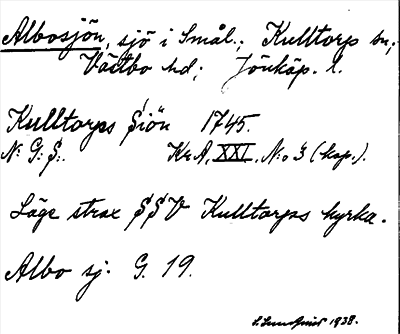 Albosjön, sjö i Smål.; Kulltorp sn;
Västbo hd; Jönköp. l.
Kulltorps Siön 1745.
N: G: S:. KrA, XXI, N:o 3 (kop.).
Läge strax SSV Kulltorps kyrka.
Albo sj. G. 19.
1938.